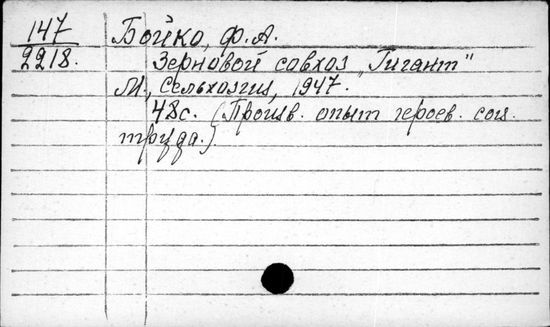 147 Бойко, Ф.А.
2218. Зерновой совхоз "Гигант"
М., Сельхозгиз, 1947.
48с. (Произв. опыт героев. соц.
труда.)